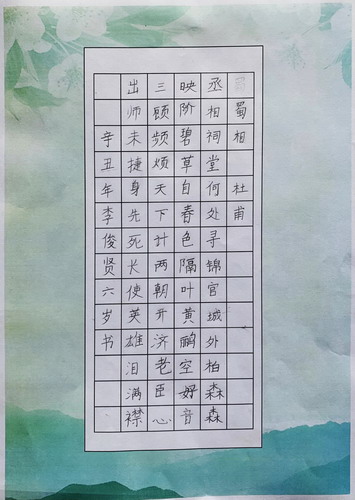 蜀相 杜甫
丞相祠堂何处寻锦官城外柏森森
映阶碧草自春色隔叶黄鹂空好音
三顾频烦天下计两朝开济老臣心
出师未捷身先死长使英雄泪满襟
辛丑年李俊贤六岁书